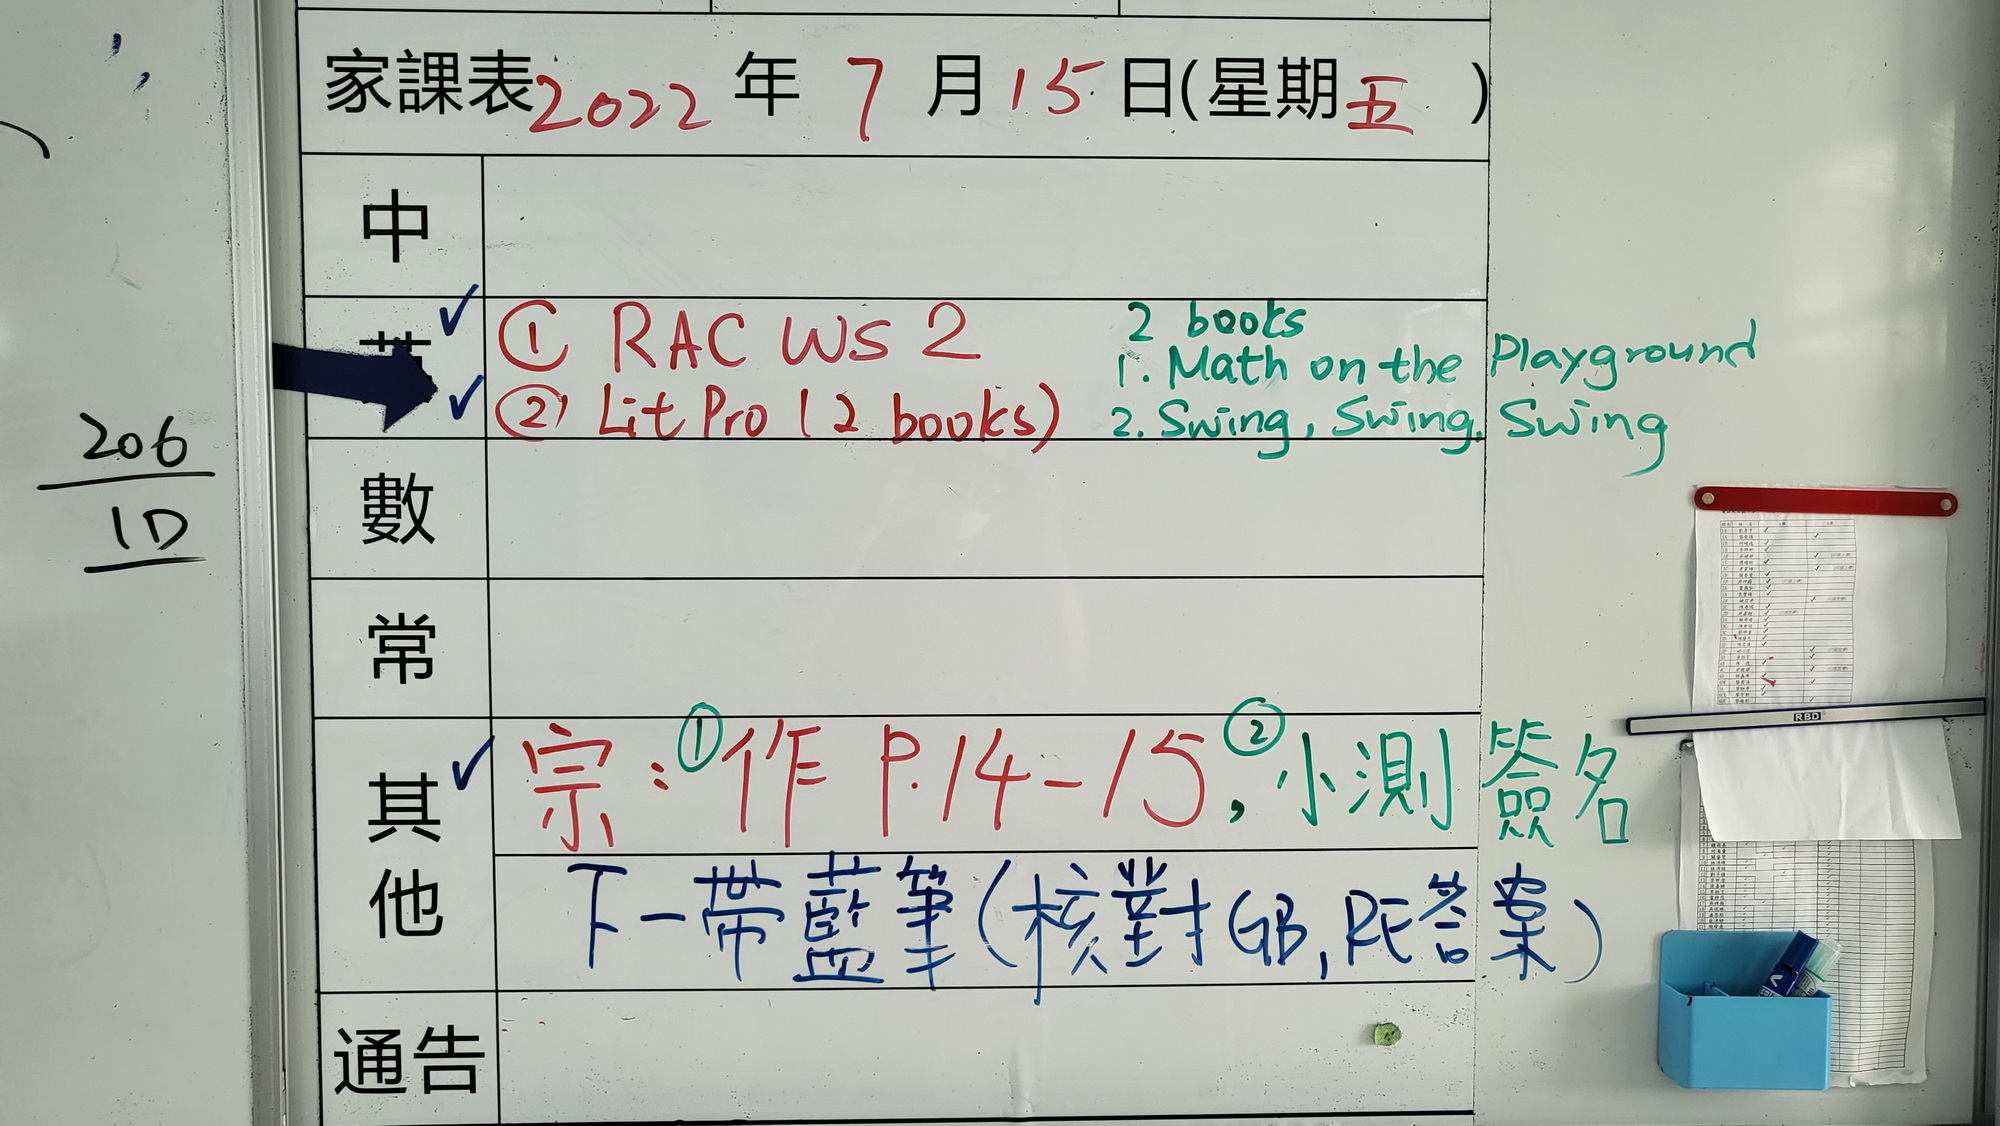 家課表 2022 年 7 月 15 日(星期五 )
中
① RAC WS 2
② Lit Pro (2 books)
2 books
1. Math on the Playground
2. Swing, Swing, Swing
206
1D
數
常
其他
宗: ①作 P.14-15, ②小測 簽名
下一帶藍筆(核對 GB, RE答案)
通告
RBD